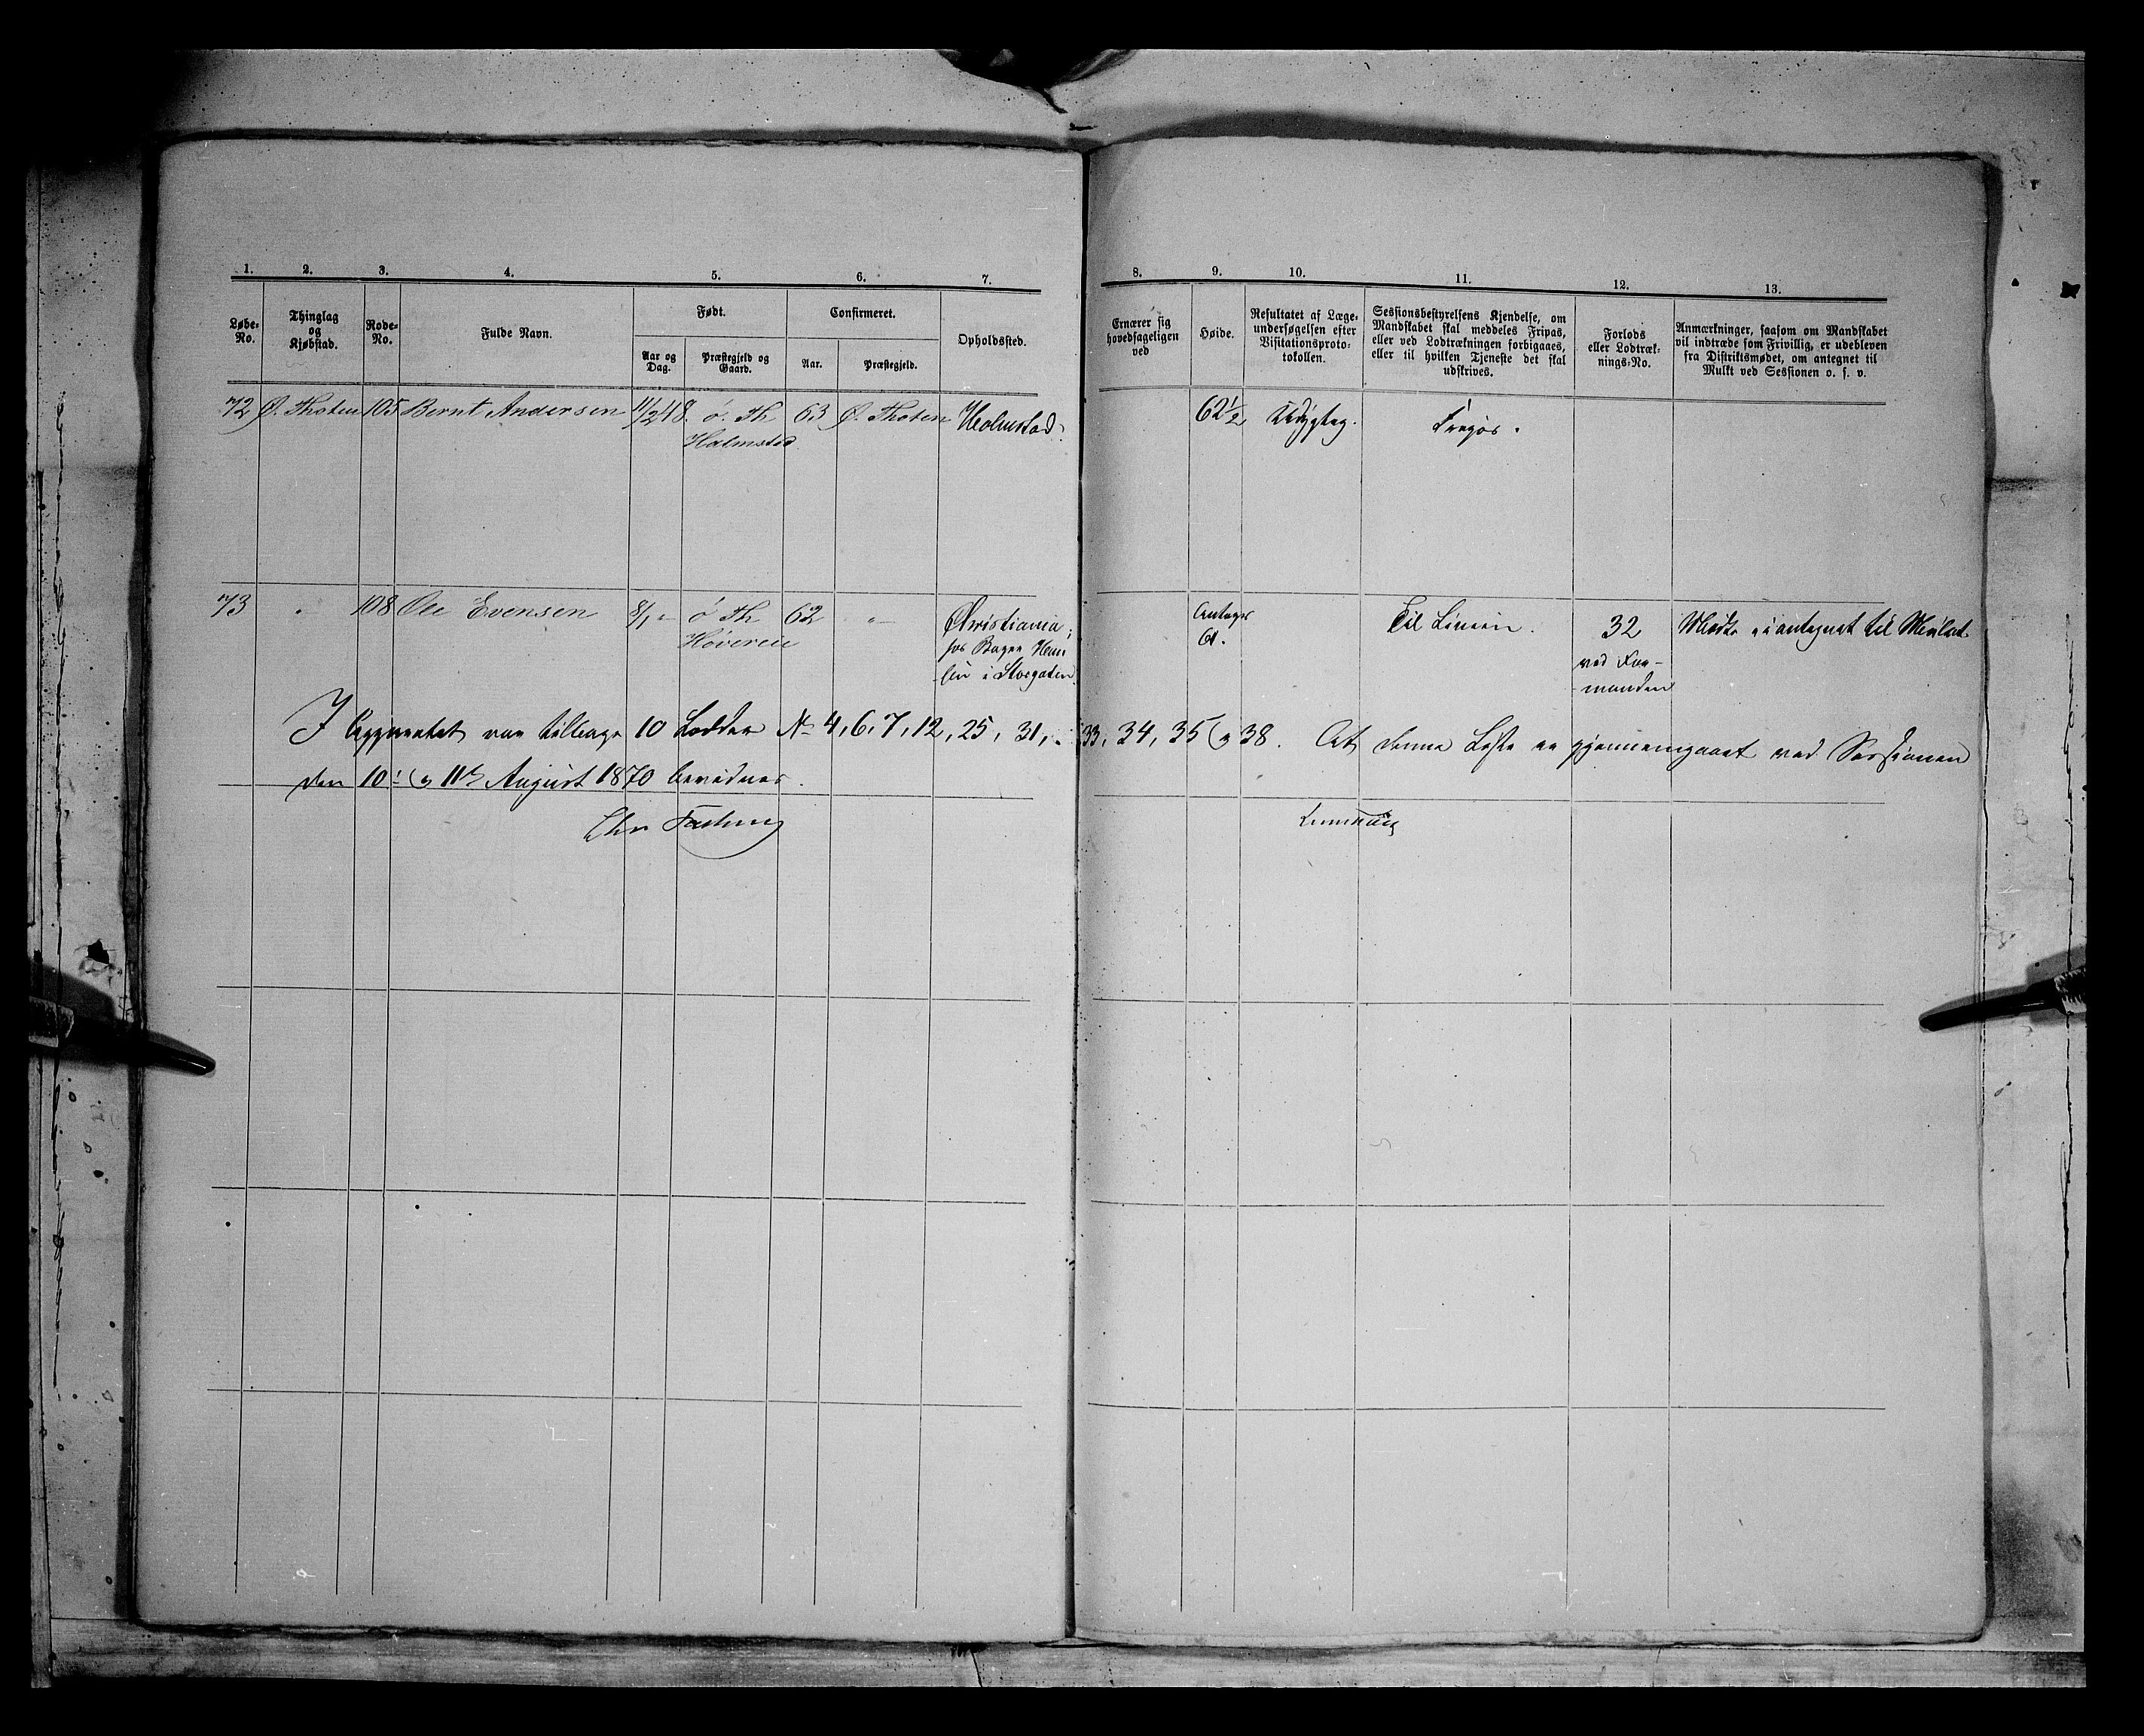 1. 2. 3. 4. 5. 6. 7. 8. 9. 10. 11. 12. 13.
Løbe-No. Thinglag og Kjøbstad. Rode-No. Fulde Navn. Født. Confirmeret. Opholdssted.
Aar og Dag. Præstegjeld og Gaard. Aar. Præstegjeld.
Ernærer sig hovedsageligen ved
Høide.
Resultatet af Læge-
undersøgelsen efter
Visitationsproto-
tokollen.
Sessionsbestyrelsens Kjendelse, om
Mandskabet skal meddeles Fripas,
eller ved Lodtrækningen forbigaaes,
eller til hvilken Tjeneste det skal
udskrives.
Forlods
eller Lodtræk-
nings-No.
Anmærkninger, saasom om Mandskabet
vil indtræde som Frivillig, er udebleven
fra Distriktsmødet, om antegnet til
Mulkt ved Sessionen o. s. v.
72 Ø. Thoten 105 Bernt Andersen 11/2 48. ø. Th 63 Ø. Thoten Holmstad. 62½ Udygtig. Fripas.
Halmstad
73 " 108 Ole Evensen 8/1 " ø Th 62 " Christiania, Antages 61. Til Linien. 32 Mødte ei antegnet til Mulct.
Høveren hos Bager
i Storgaden. ved For-
manden
I Apparatet var tilbage 10 Lodder No 4, 6, 7, 12, 25, 31, 33, 34, 35 og 38. At denne Liste er gjennemgaaet ved Sessionen
den 10de og 11te August 1870 bevidnes.
Chr